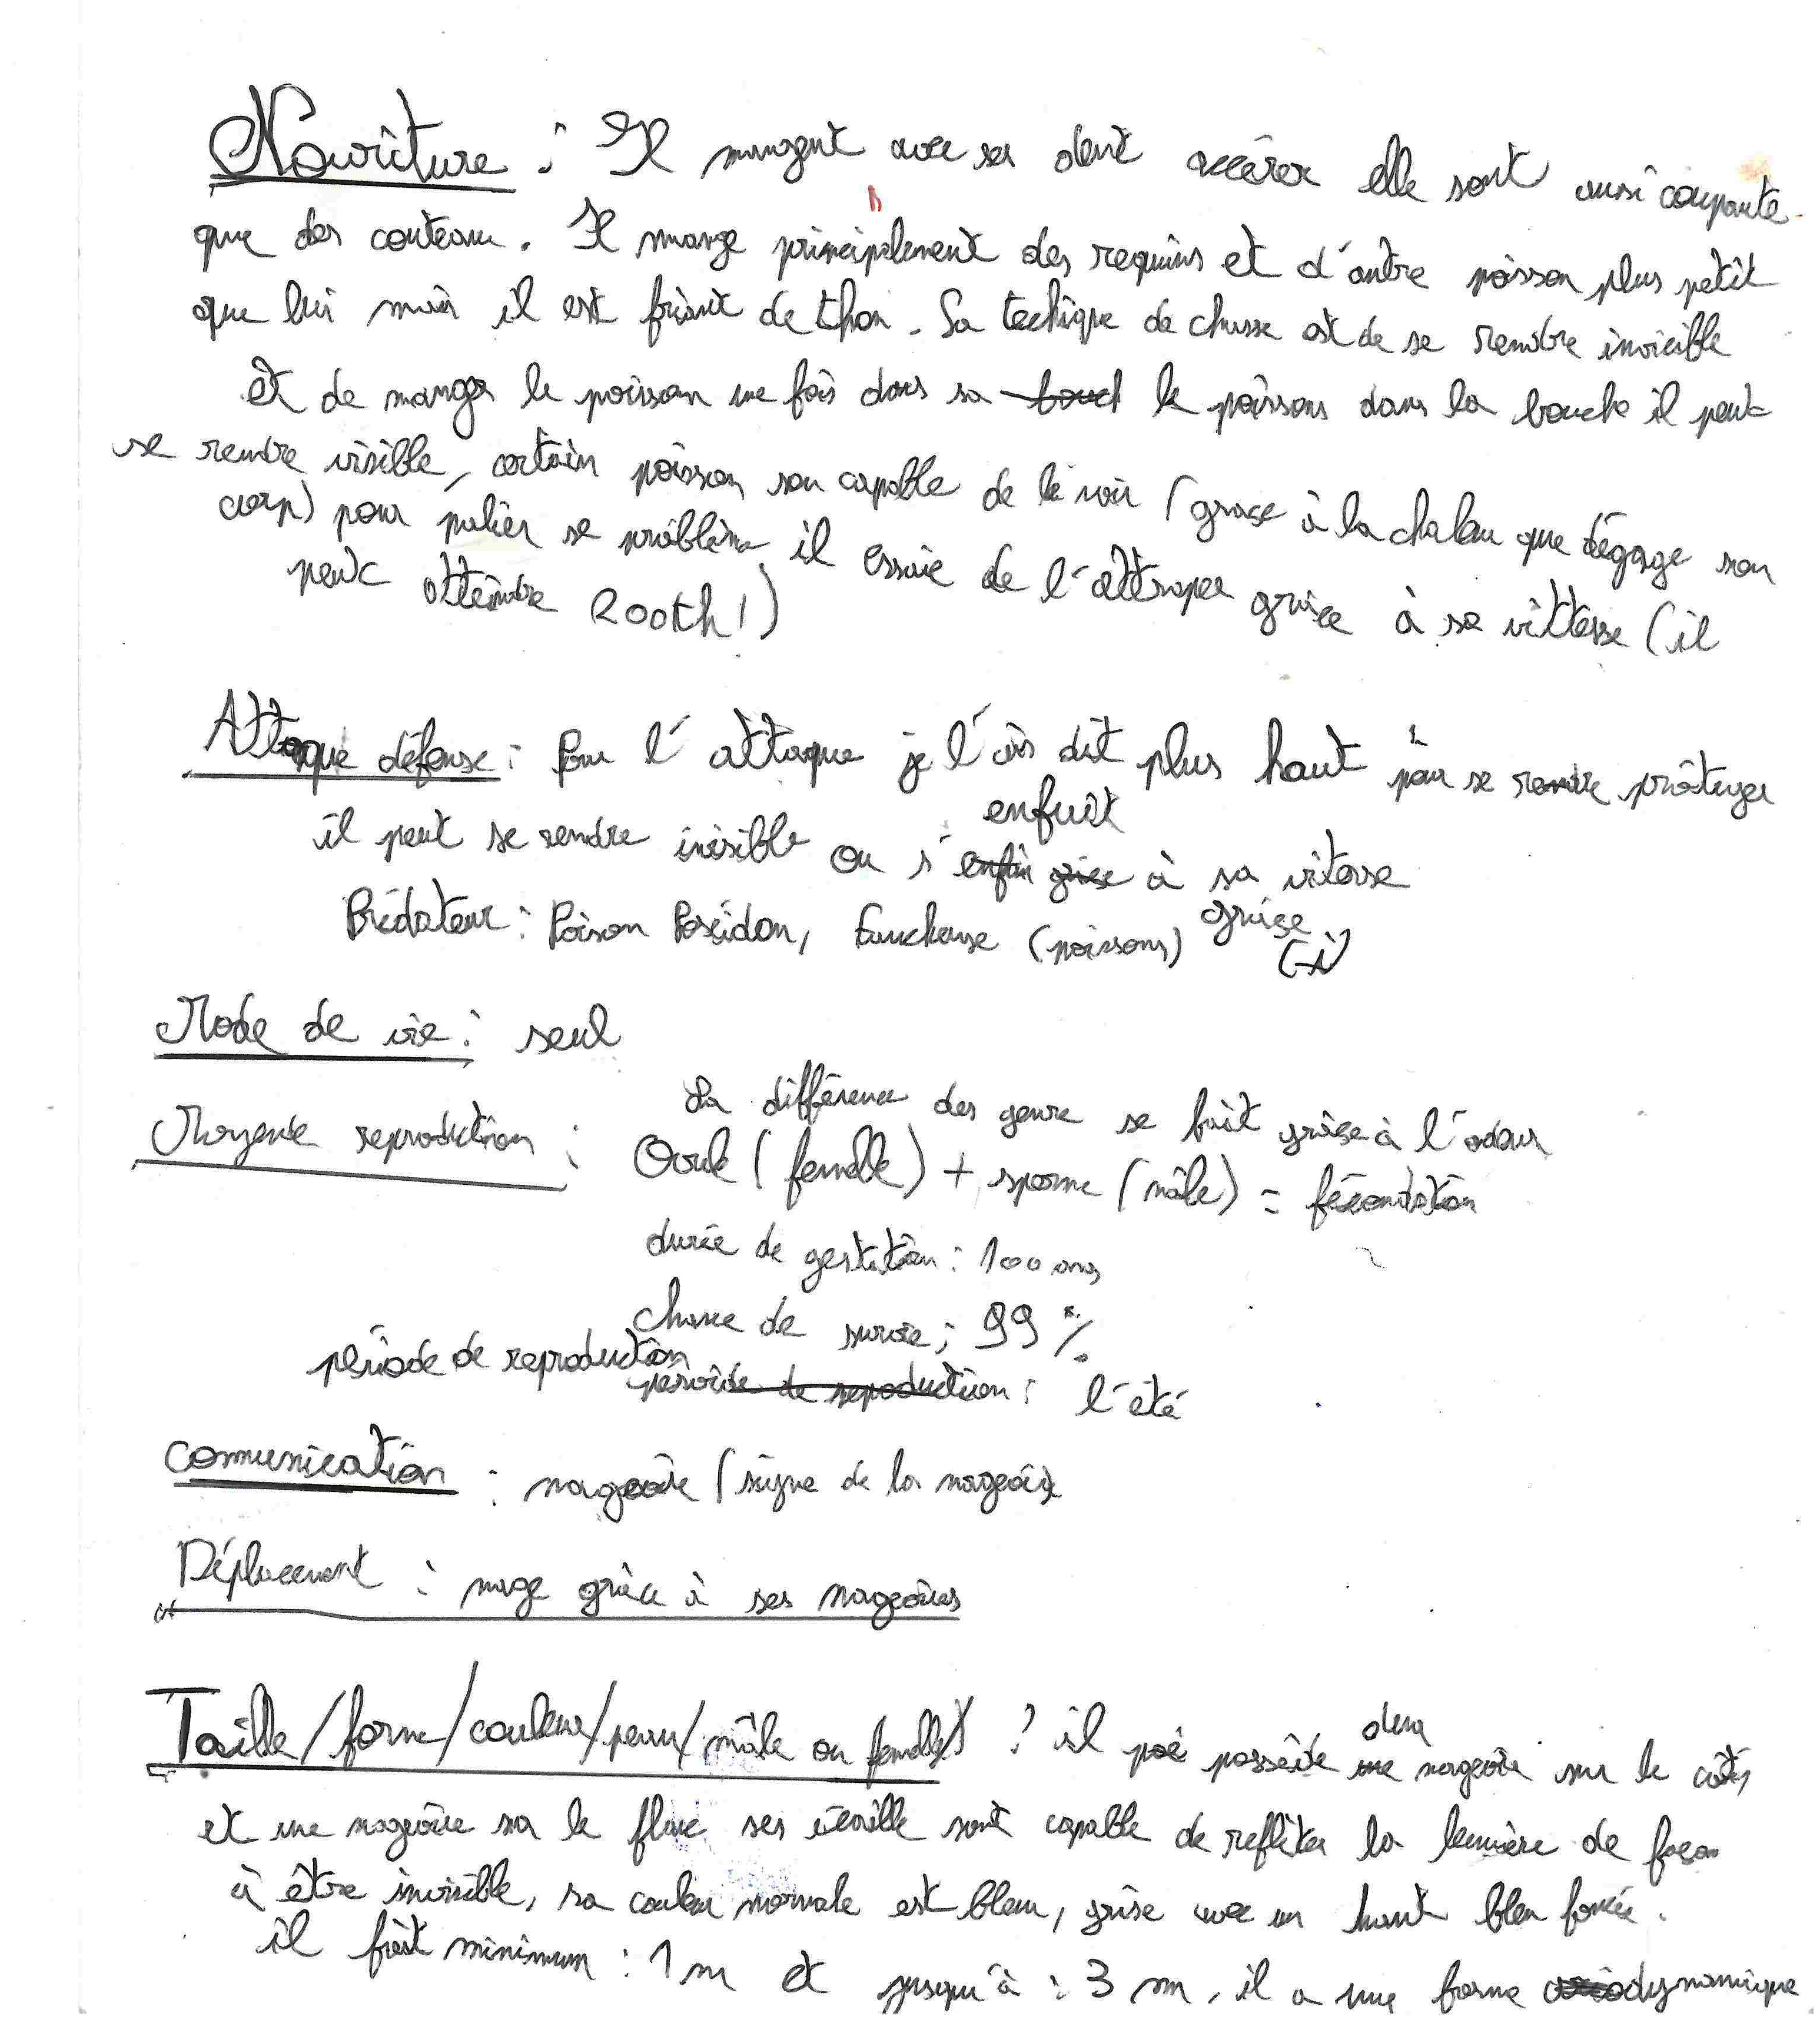 Nouriture : Il mangent avec ses dent accérer elle sont aussi coupante
que des couteau. Il mange principalement des requins et d'autre poisson plus petit
que lui mais il est friant de thon. Sa techique de chasse est de se rendre invicible
et de manger le poisson une fois dans sa bouch le poisson dans la bouche il peut
se rendre visible, certain poisson son capable de le voir (grace à la chaleur que dégage son
corp) pour palier se problème il essaie de l'attraper grâce à sa vittesse (il
peut atteindre 200th!)
Attaque défense : Pour l'attaque je l'ais dit plus haut pour se rendre protéger
il peut se rendre inisible ou s'enfin grâce à sa vitesse
enfuit
grâce
Prédateur : Poison Poséidon, Faucheuse (poissons)
Mode de vie : seul
Moyende reproduction : La différence des genre se fait grâce à l'odeur
Ovule (femelle) + sperme (mâle) = fécondation
durée de gestation : 100 ans
chance de survie : 99 %
période de reproduction période de reproduction : l'été
Comunication : nageoire (signe de la nageoire
Déplacement : nage grâce à ses nageoires
Taille/forme/couleur/peau/mâle ou femelle) : il possède une nageoire sur le côtés
deux
et une nageoire sur le flanc ses écaille sont capable de refléter la lumière de façon
à être invisible, sa couleur normale est bleu, grise avec un haut bleu foncée.
il fait minimum : 1 m et jusqu'à : 3 m, il a une forme aérodynamique